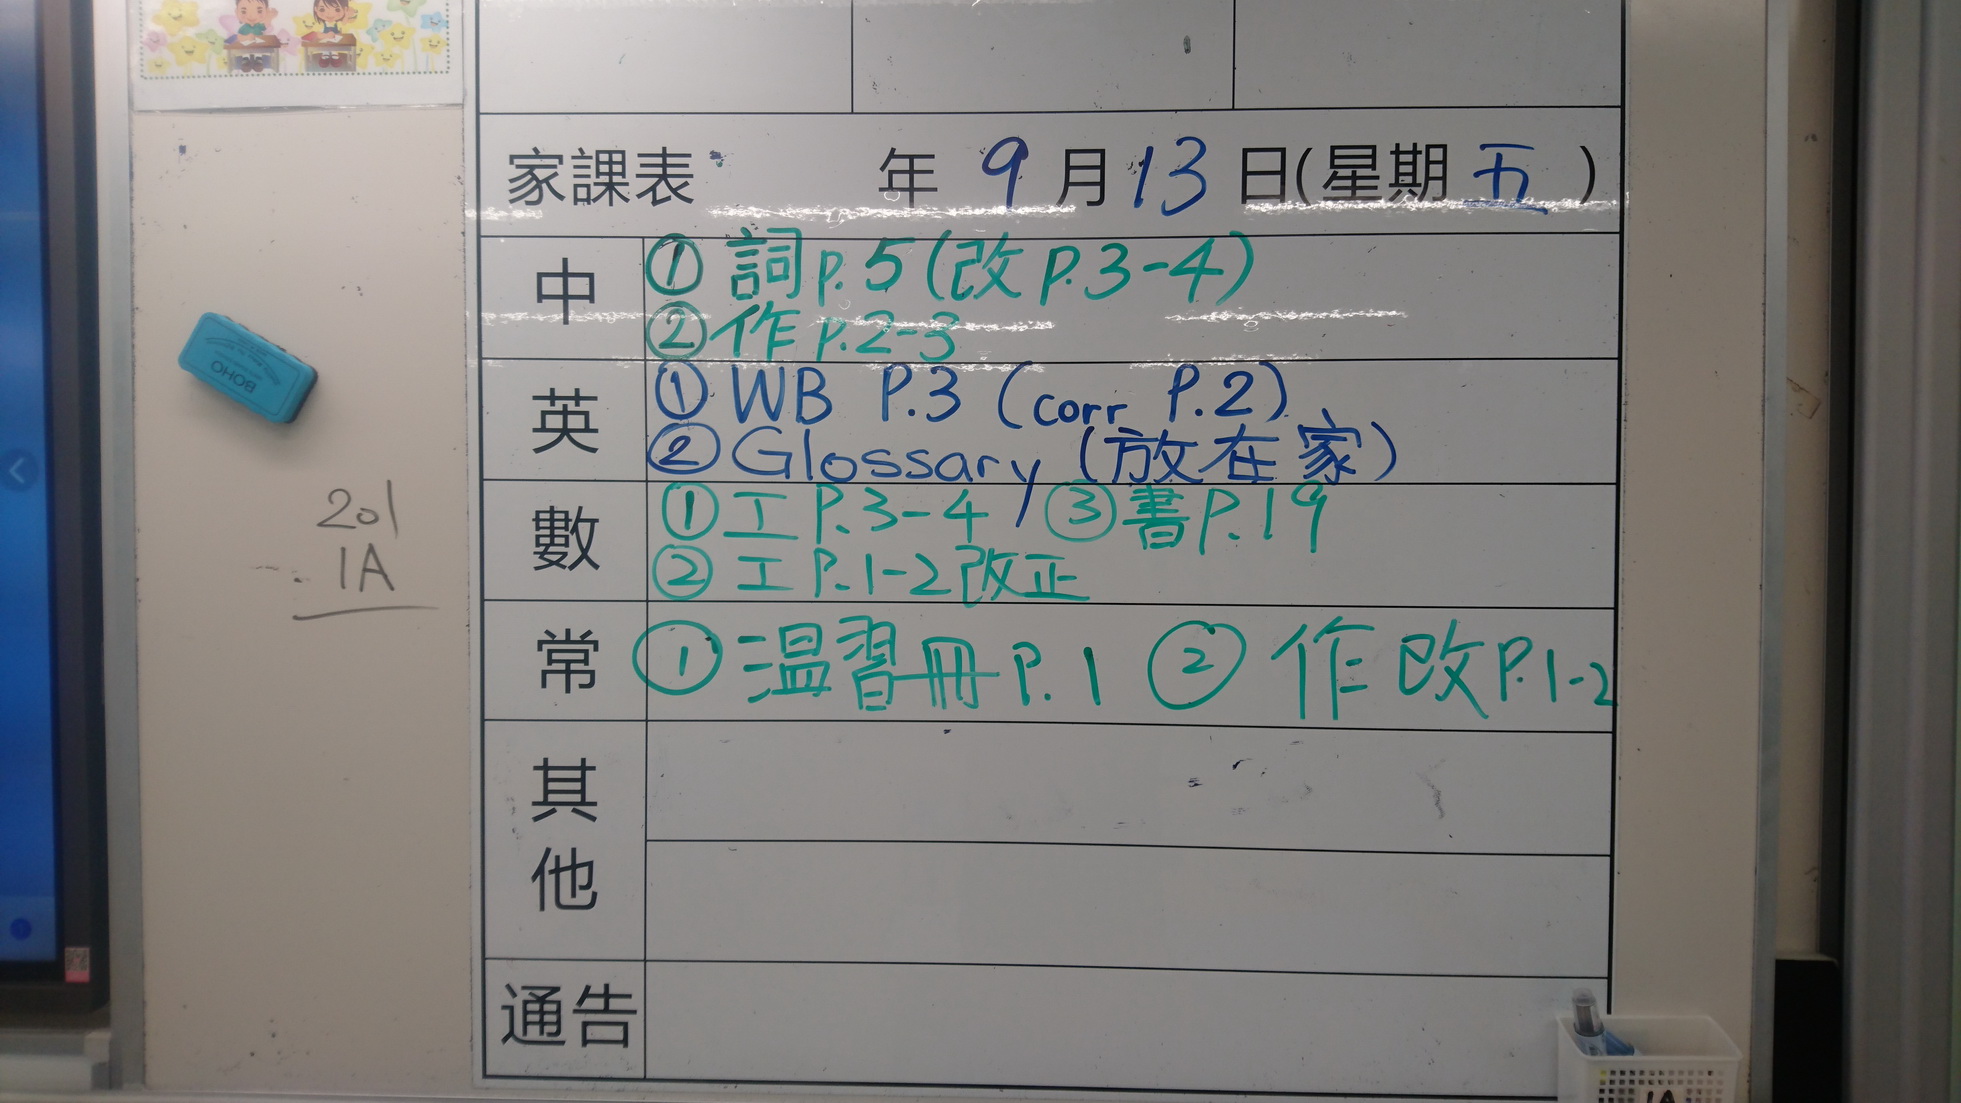 家課表 年 9 月 13 日(星期 五 )
中
① 詞 p.5 (改 p.3-4)
② 作 p.2-3
英
① WB P.3 (corr P.2)
② Glossary (放在家)
數
① 工 P.3-4 ③ 書 P.19
② 工 P.1-2 改正
常
① 溫習冊 P.1 ② 作改 P.1-2
其他
通告
201
1A
BOHO
1A